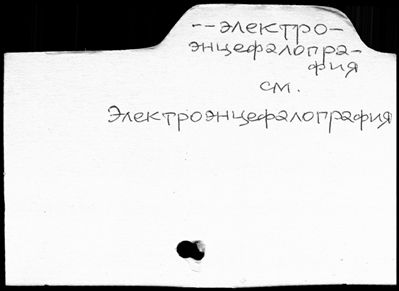 --электро-
энцефалогра-
фия
см.
Электроэнцефалография